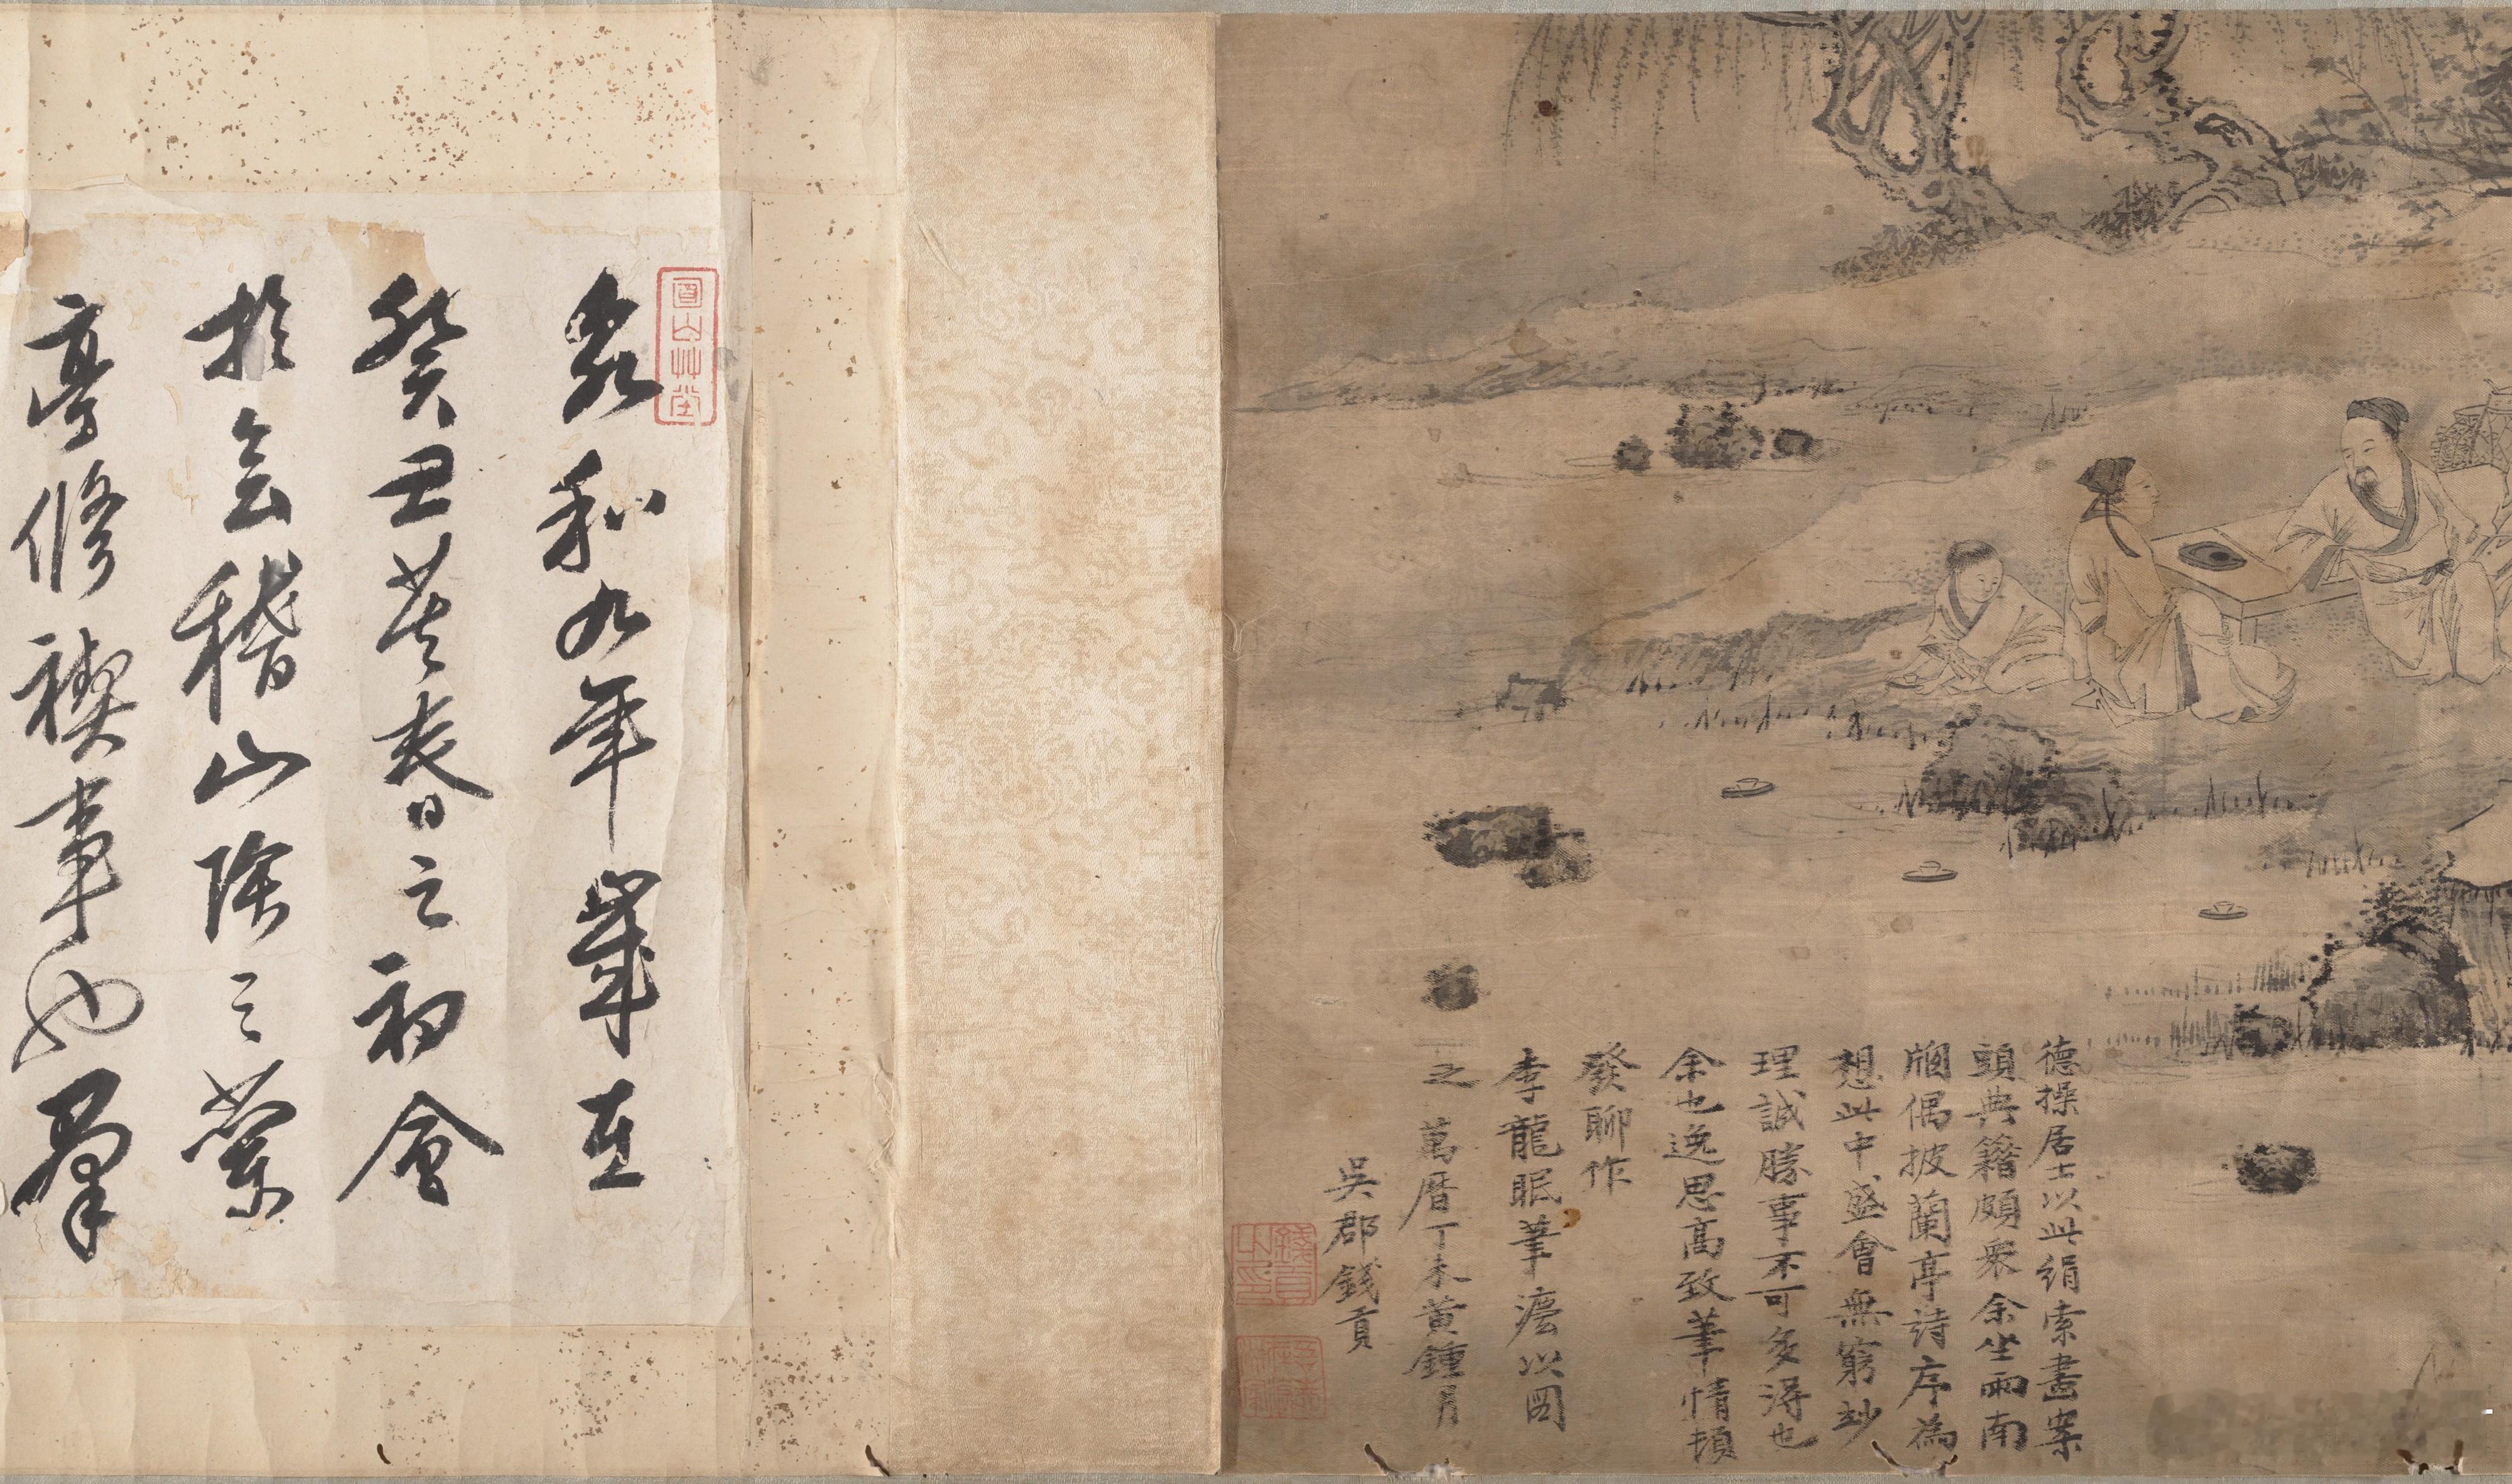 德操居士以此絹索畫案
頭典籍頗衆余坐雨南
牕偶披蘭亭詩序為
想此中盛會無窮妙
理誠勝事不可多得也
余也逸思高致筆情頓
發聊作
李龍眠筆瀍以圖
之 萬曆丁未黃鍾月
吳郡錢貢
永和九年歲在
癸丑暮春之初會
於會稽山陰之蘭
亭脩禊事也羣